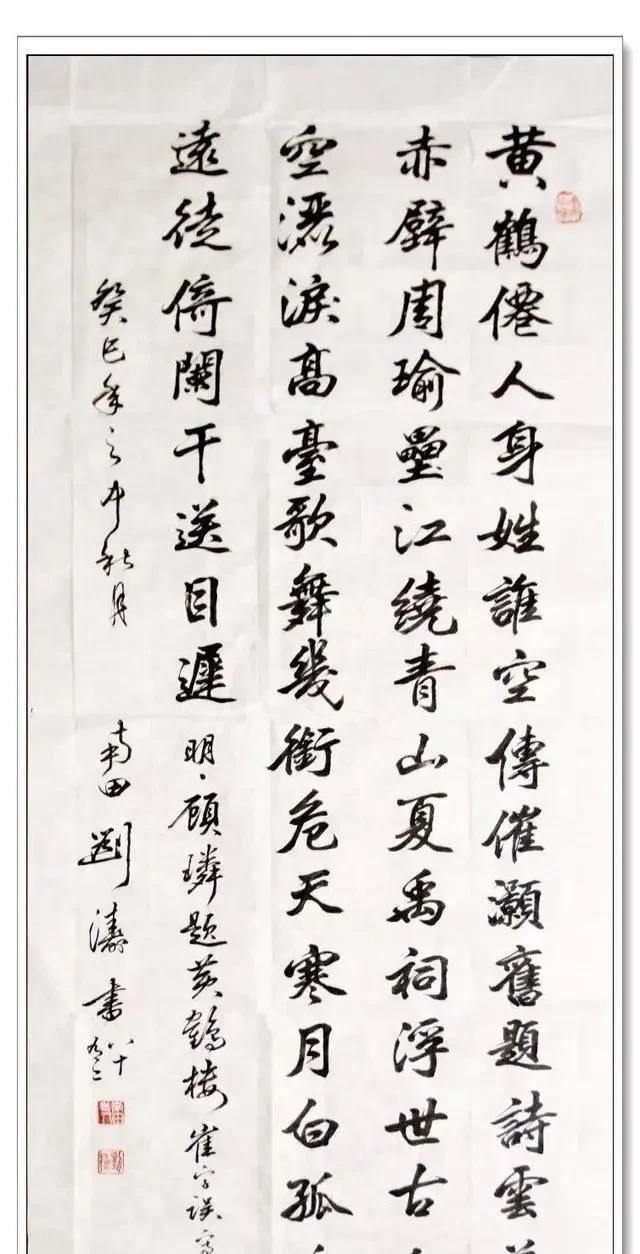 黄鶴僊人身姓誰空傳催灝舊題詩雲
赤壁周瑜壘江繞青山夏禹祠浮世古
空灑淚高臺歌舞幾銜危天寒月白孤
遠徒倚闌干送目遲
明、顧璘題黄鶴楼 崔字误寫
癸巳年之中秋月 南田劉濤書 八十